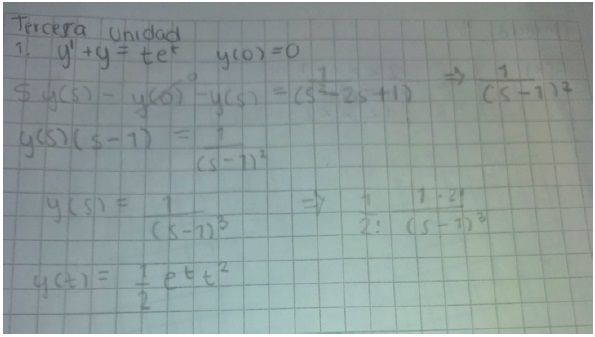 Tercera Unidad
1. y' + y = te^t y(0) = 0
s y(s) - y(0)^0 - y(s) = 1/(s² - 2s + 1) ⇒ 1/(s-1)²
y(s)(s-1) = 1/(s-1)²
y(s) = 1/(s-1)³ ⇒ 1/2! 1·2!/(s-1)³
y(t) = 1/2 e^t t²